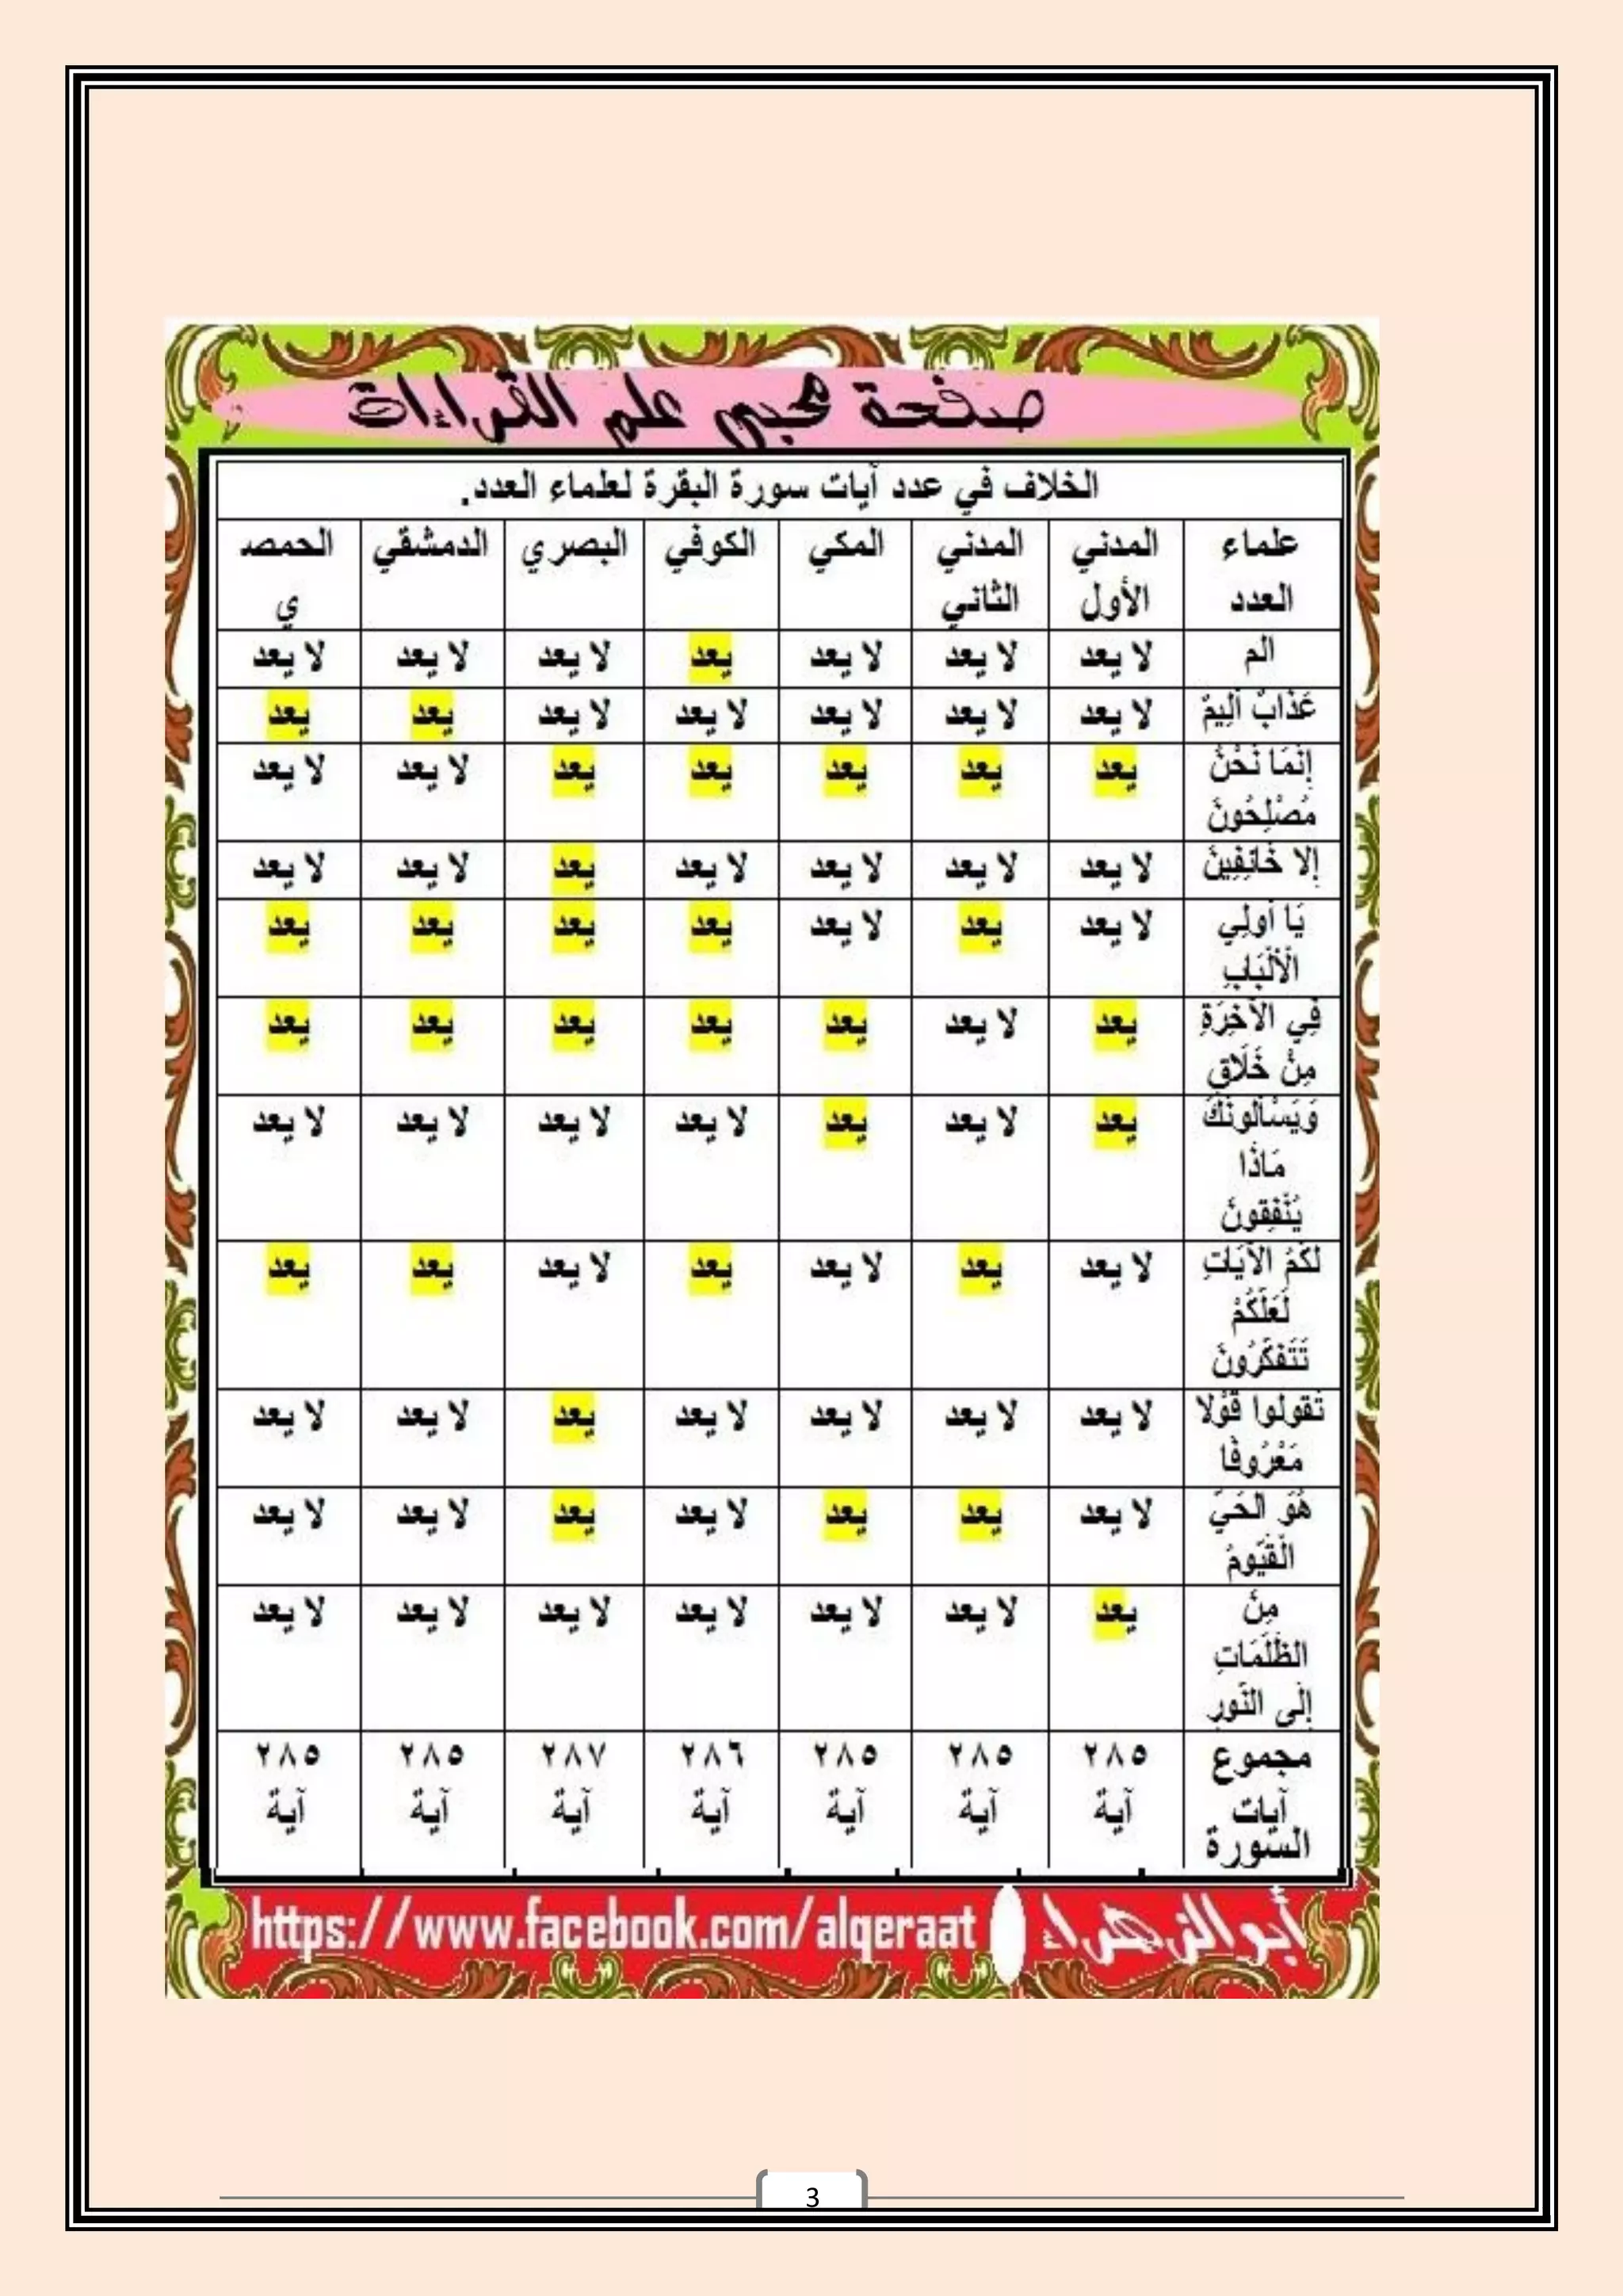 صفحة محبي علم القراءات
الخلاف في عدد آيات سورة البقرة لعلماء العدد.
علماء العدد المدني الأول المدني الثاني المكي الكوفي البصري الدمشقي الحمصي
الم لا يعد لا يعد لا يعد يعد لا يعد لا يعد لا يعد
عَذَابٌ أَلِيمٌ لا يعد لا يعد لا يعد لا يعد لا يعد يعد يعد
إِنَّمَا نَحْنُ مُصْلِحُونَ يعد يعد يعد يعد يعد لا يعد لا يعد
إِلا خَائِفِينَ لا يعد لا يعد لا يعد لا يعد يعد لا يعد لا يعد
يَا أُولِي الْأَلْبَابِ لا يعد يعد لا يعد يعد يعد يعد يعد
فِي الْآخِرَةِ مِنْ خَلَاقٍ يعد لا يعد يعد يعد يعد يعد يعد
وَيَسْأَلُونَكَ مَاذَا يُنْفِقُونَ يعد لا يعد يعد لا يعد لا يعد لا يعد لا يعد
لَكُمُ الْآيَاتِ لَعَلَّكُمْ تَتَفَكَّرُونَ لا يعد يعد لا يعد يعد لا يعد يعد يعد
تَقُولُوا قَوْلًا مَعْرُوفًا لا يعد لا يعد لا يعد لا يعد يعد لا يعد لا يعد
هُوَ الْحَيُّ الْقَيُّومُ لا يعد يعد يعد لا يعد يعد لا يعد لا يعد
مِنَ الظُّلُمَاتِ إِلَى النُّورِ يعد لا يعد لا يعد لا يعد لا يعد لا يعد لا يعد
مجموع آيات السورة ٢٨٥ آية ٢٨٥ آية ٢٨٥ آية ٢٨٦ آية ٢٨٧ آية ٢٨٥ آية ٢٨٥ آية
أبو الزهراء https://www.facebook.com/alqeraat
3